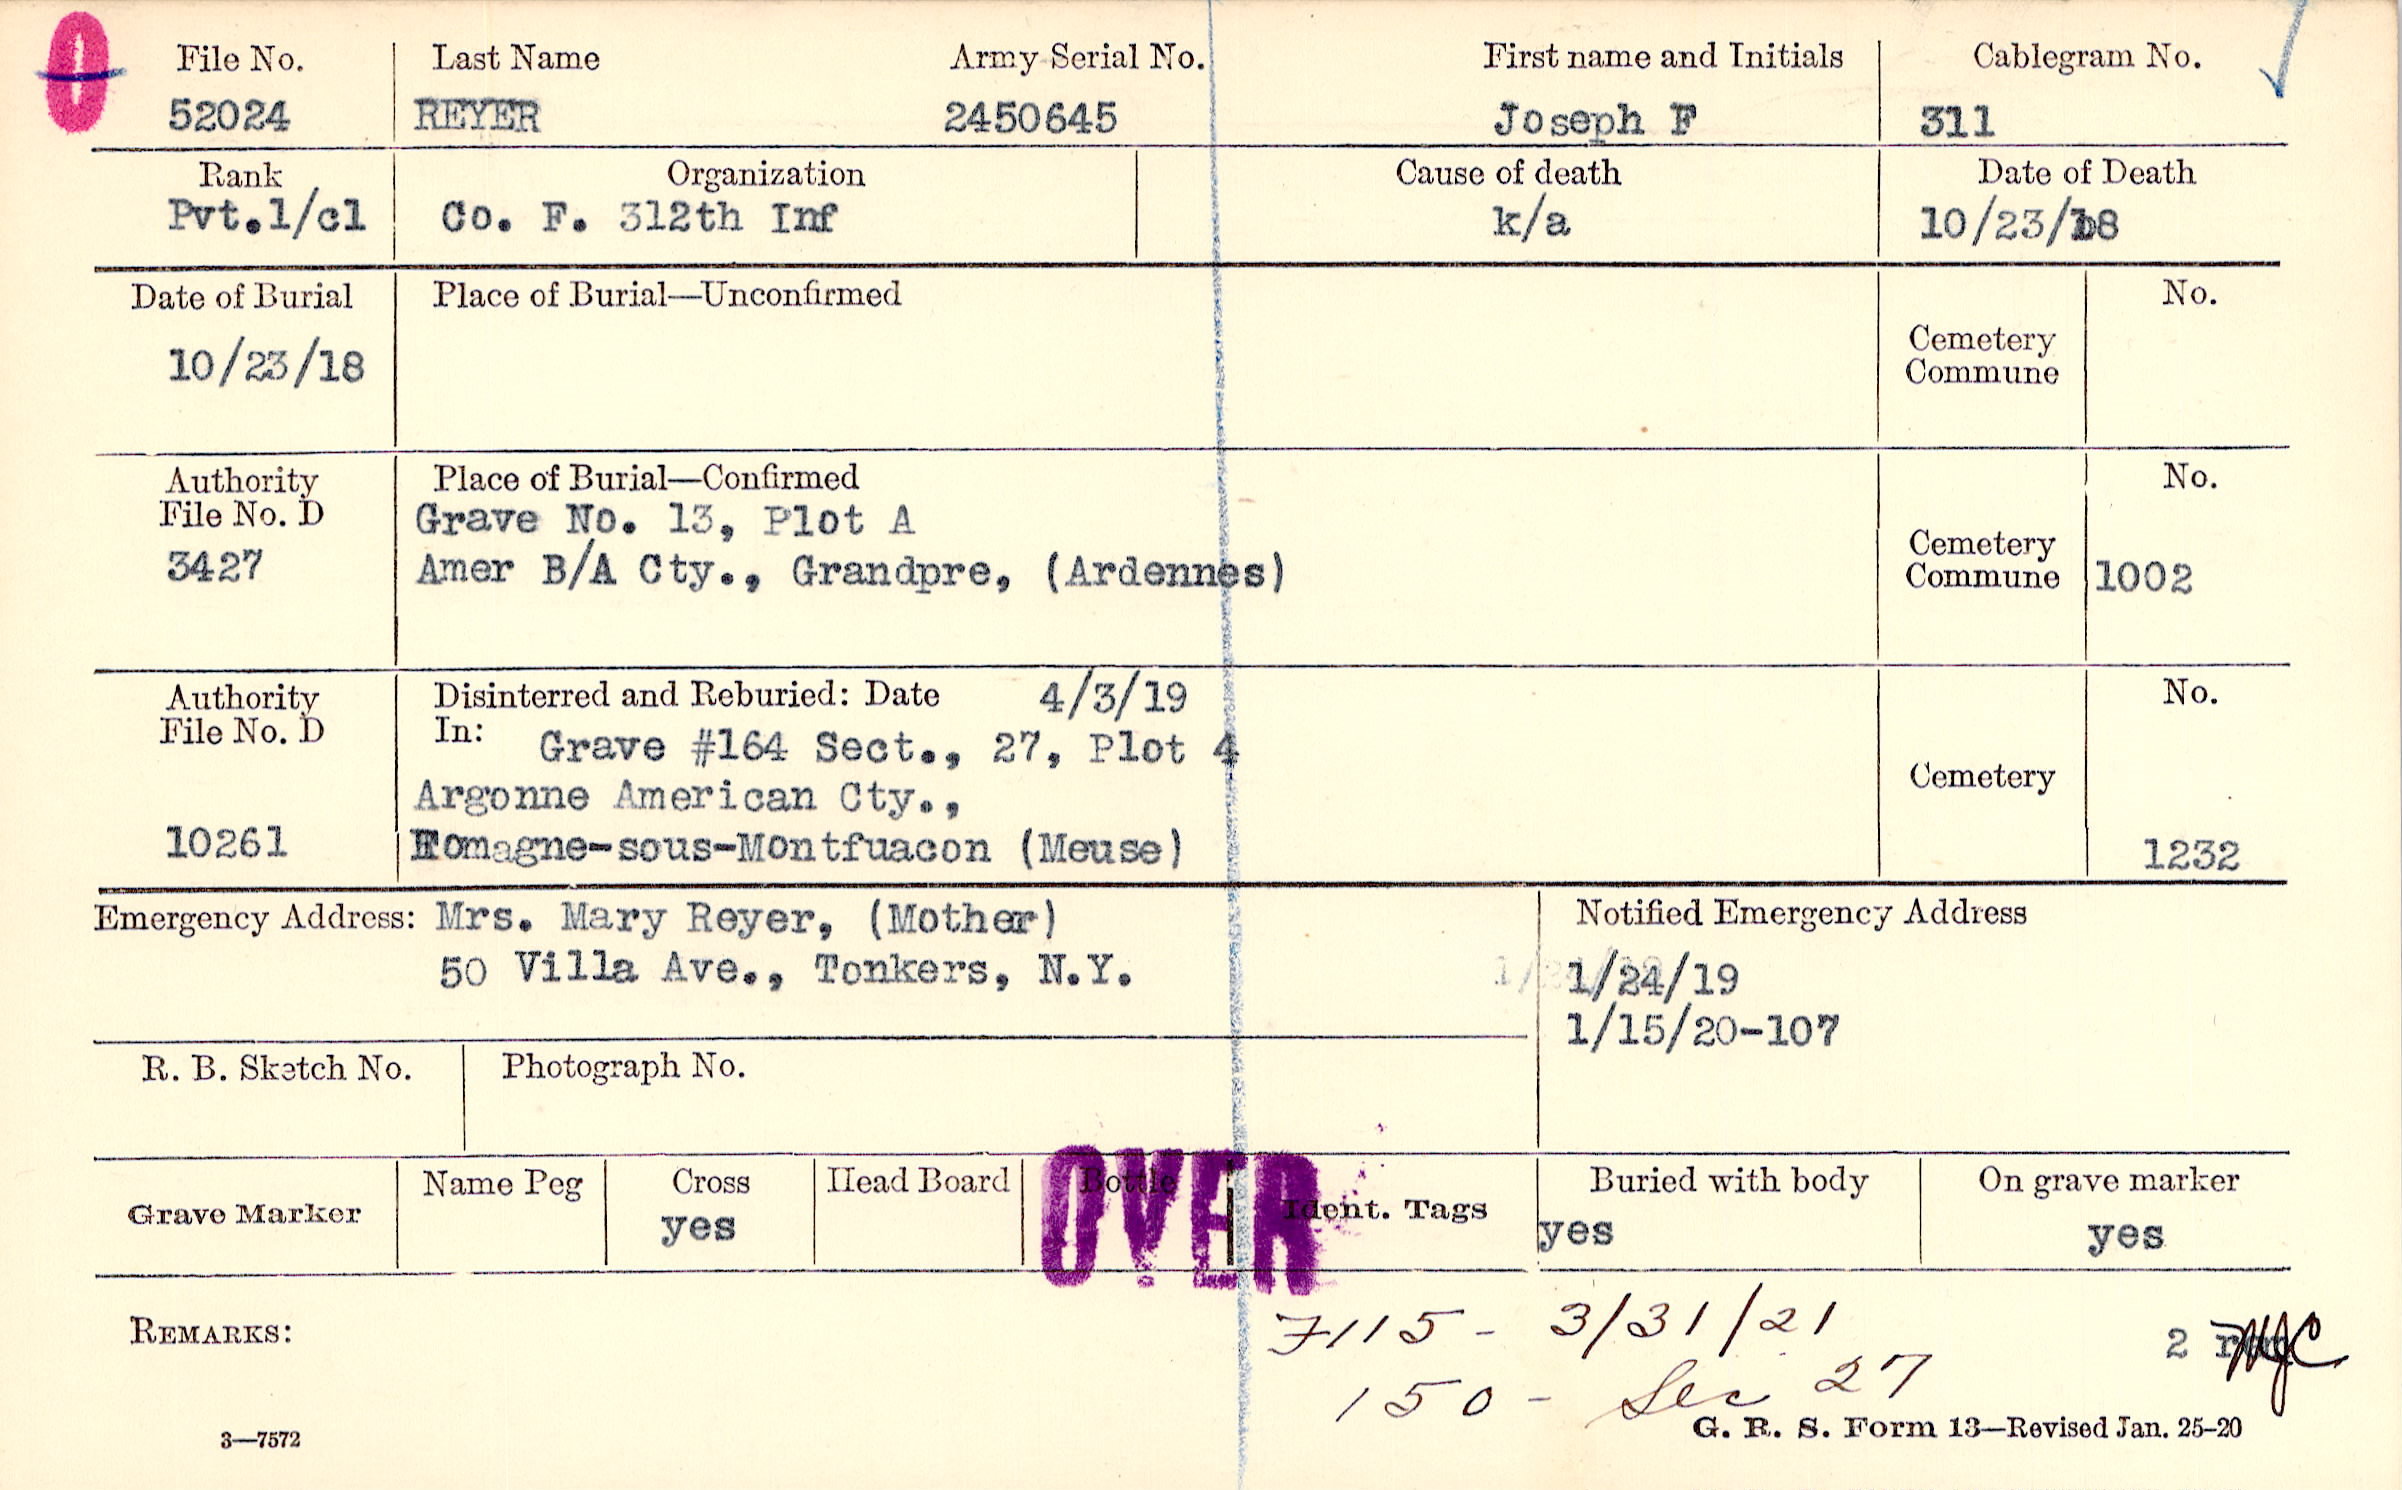 File No. Last Name Army Serial No. First name and Initials Cablegram No.
52024 REYER 2450645 Joseph F 311
Rank Organization Cause of death Date of Death
Pvt.1/cl Co. F. 312th Inf k/a 10/23/18
Date of Burial Place of Burial—Unconfirmed No.
10/23/18
Cemetery
Commune
Authority Place of Burial—Confirmed No.
File No. D Grave No. 13, Plot A
3427 Amer B/A Cty., Grandpre, (Ardennes)
Cemetery
Commune 1002
Authority Disinterred and Reburied: Date 4/3/19 No.
File No. D In: Grave #164 Sect., 27, Plot 4
Argonne American Cty., Cemetery
10261 Romagne-sous-Montfuacon (Meuse) 1232
Emergency Address: Mrs. Mary Reyer, (Mother) Notified Emergency Address
50 Villa Ave., Tonkers, N.Y. 1/24/19
1/15/20-107
R. B. Sketch No. Photograph No.
Grave Marker Name Peg Cross Head Board Bottle Ident. Tags Buried with body On grave marker
yes yes yes
OVER
REMARKS: 7115 - 3/31/21 2
150 - Sec 27
3—7572 G. R. S. Form 13—Revised Jan. 25-20